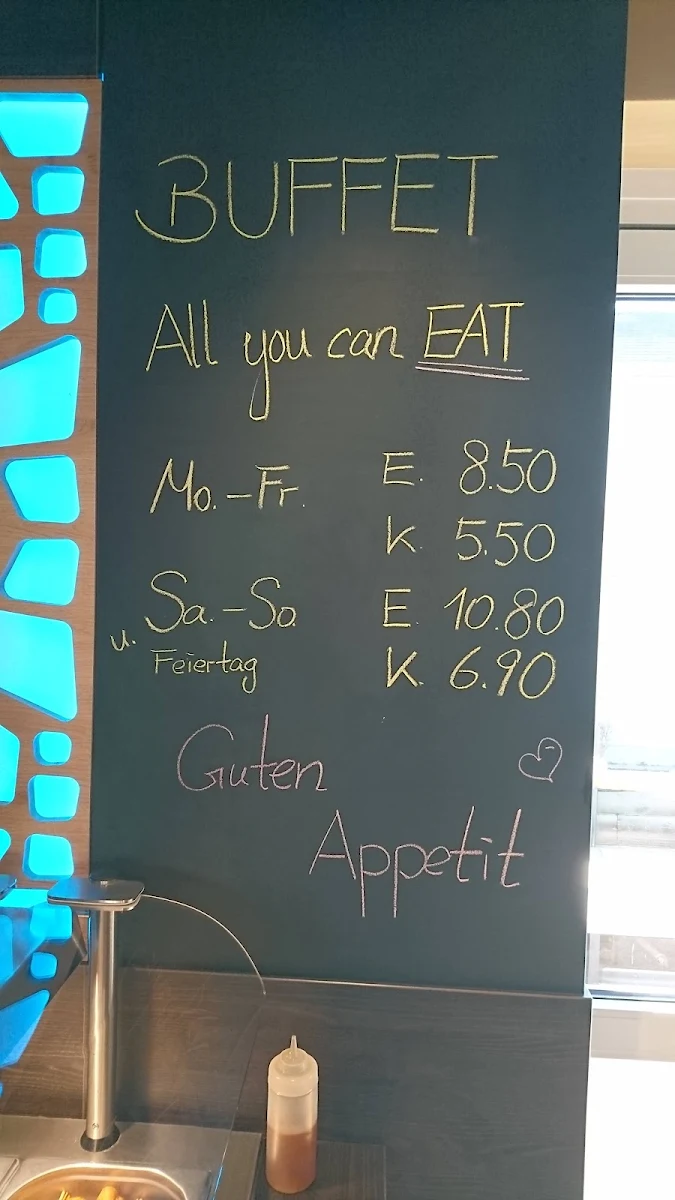 BUFFET
All you can EAT
Mo.-Fr. E. 8.50
K. 5.50
Sa.-So. E. 10.80
u. Feiertag K. 6.90
Guten
Appetit